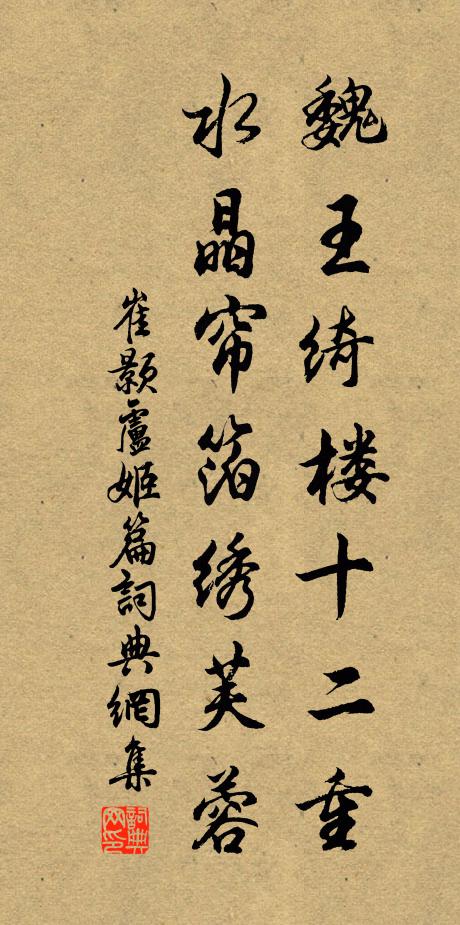 魏王绮楼十二重
水晶帘箔绣芙蓉
崔颢盧姬篇詞典網集
詞典网印